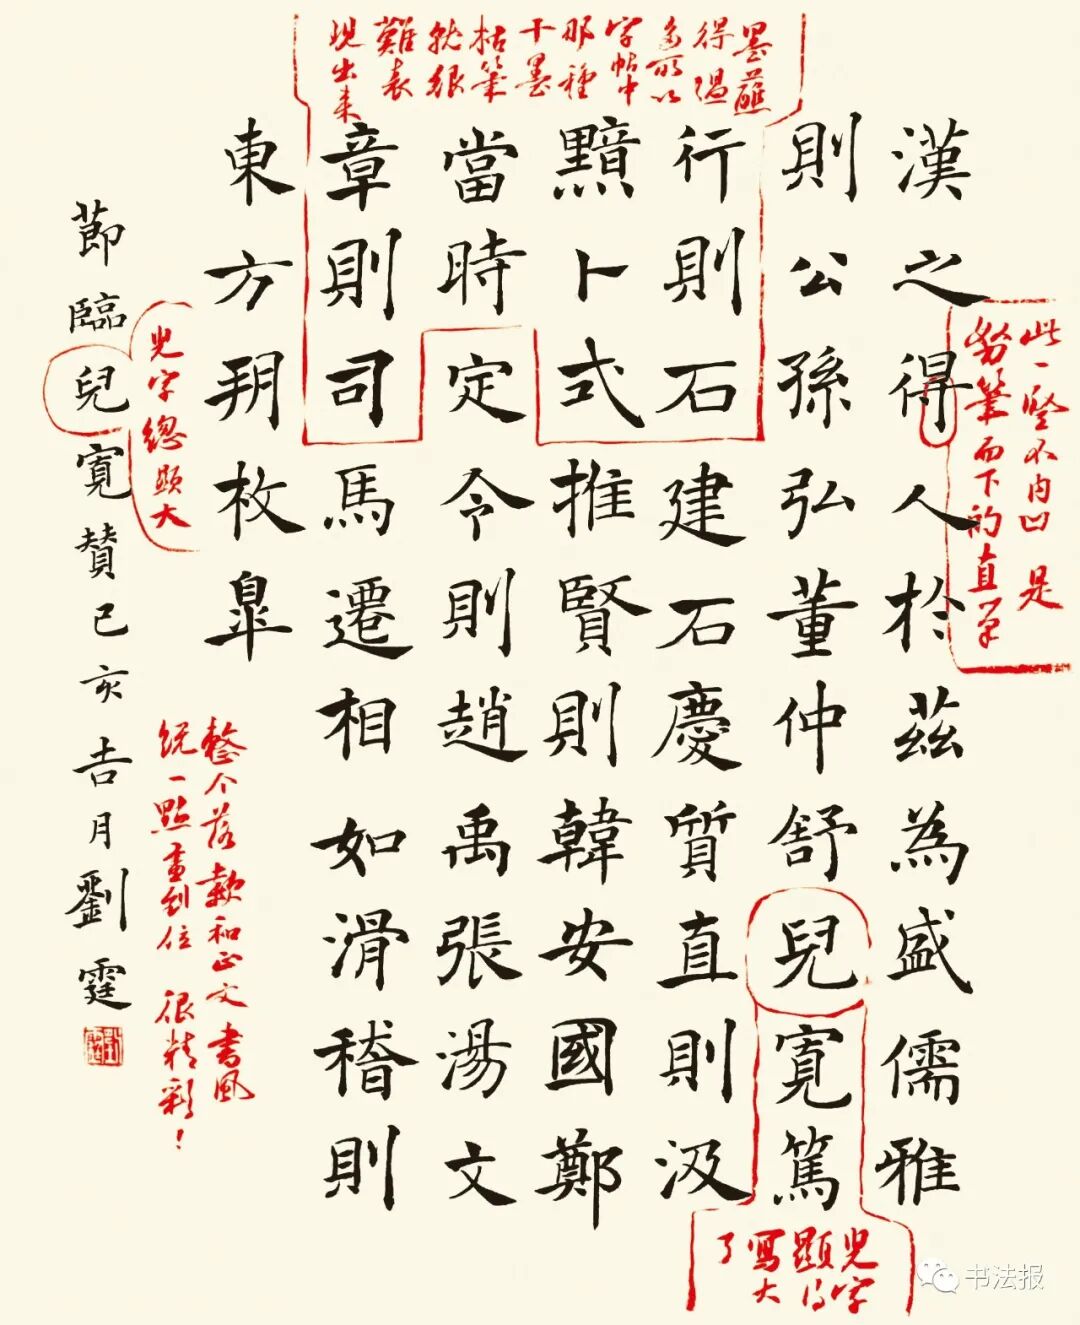 漢之得人於茲為盛儒雅
則公孫弘董仲舒兒寬篤
行則石建石慶質直則汲
黯卜式推賢則韓安國鄭
當時定令則趙禹張湯文
章則司馬遷相如滑稽則
東方朔枚臯
節臨兒寬贊己亥吉月劉霆
此一竖不内凹是
努筆而下的直筆
墨蘸
得過
多所以
字帖中
那種
干墨
枯筆
就很
難表
現出来
兒字
顯得
寫大
了
兒字總顯大
整个落款和正文書風
統一點畫到位很精彩！
书法报